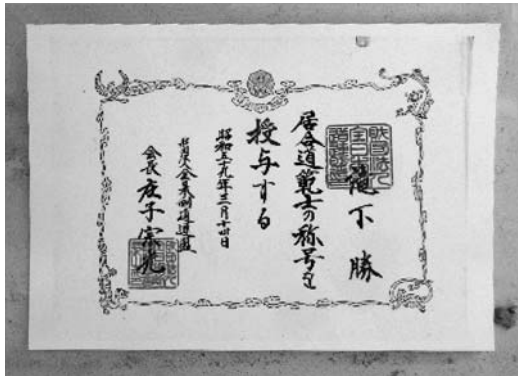 下勝
居合道範士の称号を
授与する
昭和五九年三月十四日
財団法人全日本剣道連盟
会長庄子宗光